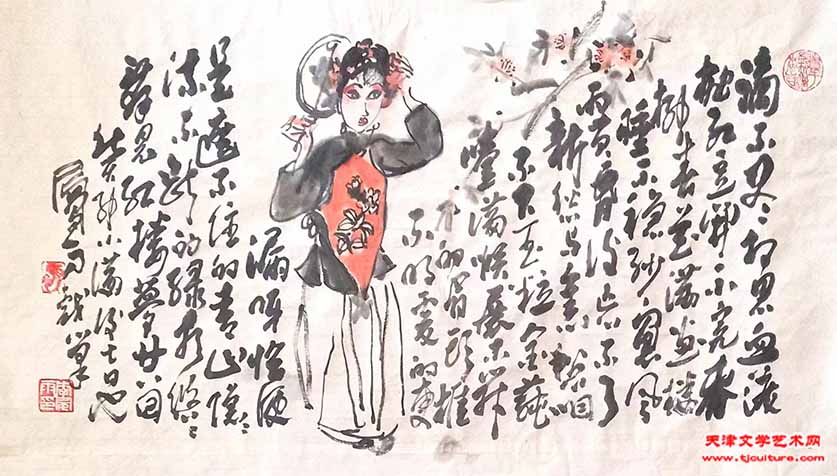 滴不尽相思血泪
抛红豆开不完春
柳春花满画楼
睡不稳纱窗风
雨黄昏后忘不了
新愁与旧愁咽
不下玉粒金莼
噎满喉展不开
的眉头捱
不明的更
漏呀恰便
是遮不住的青山隐隐
流不断的绿水悠悠
红楼梦
癸卯小满后七日也
天津文学艺术网
www.tjculture.com